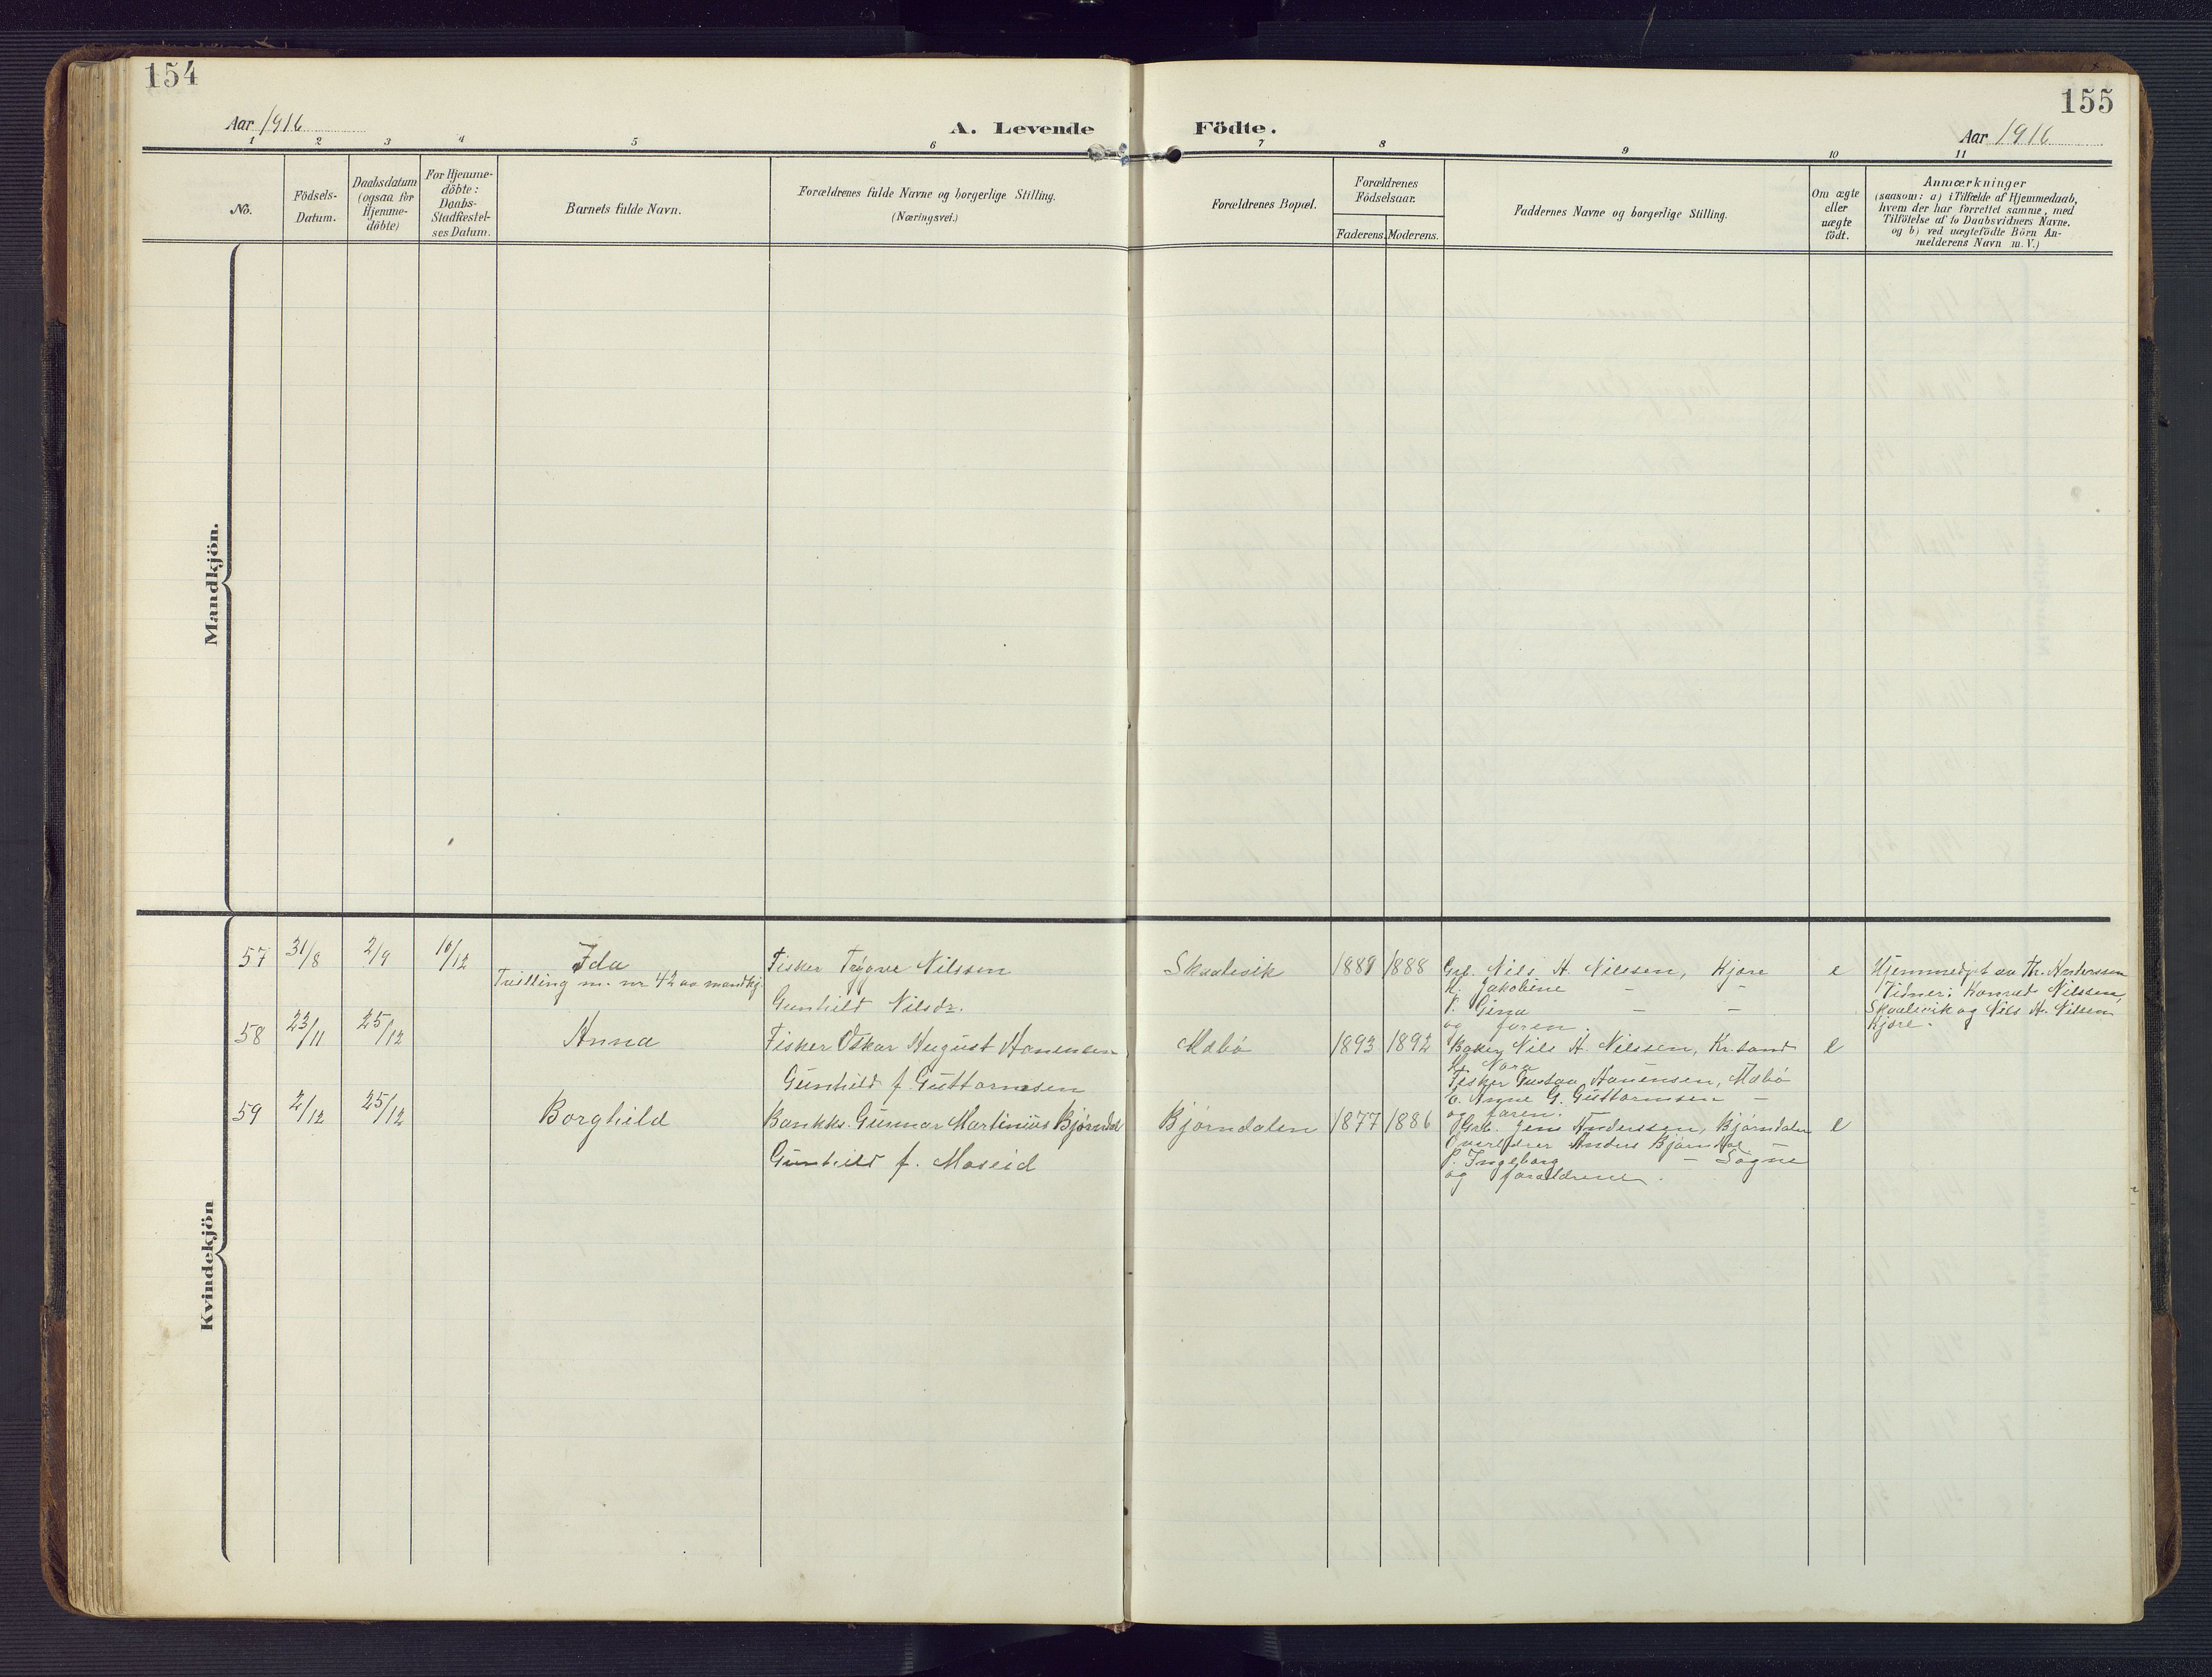 154
155
Aar 1916
A. Levende Födte.
Aar 1916
1 2 3 4 5 6 7 8 9 10 11
No.
Födsels-
Datum.
Daabsdatum
(ogsaa for
Hjemme-
döbte)
For Hjemme-
döbte:
Daabs-
Stadfæstel-
ses Datum.
Barnets fulde Navn.
Forældrenes fulde Navne og borgerlige Stilling.
(Næringsvei.)
Forældrenes Bopæl.
Forældrenes
Födselsaar.
Faderens. Moderens.
Faddernes Navne og borgerlige Stilling.
Om ægte
eller
uægte
födt.
Anmærkninger
(saasom: a) i Tilfælde af Hjemmedaab,
hvem der har forrettet samme, med
Tilföielse af to Daabsvidners Navne,
og b) ved uægtefödte Börn An-
melderens Navn m. V.)
Mandkjön.
Kvindekjön
57 31/8 2/9 10/12
Ida
Tvilling m. nr 42 av mandkj.
Fisker Trygve Nilssen
Gunhild Nilsdr.
Skaalevik
1889 1888
Grb. Nils A. Nilssen, Kjøre
K. Jakobine — —
P. Gina — —
og faren.
e
Hjemmedøpt av Th. Anderssen
Vidner: Konrad Nilssen,
Skaalevik og Nils A. Nilssen
Kjøre.
58 23/11 25/12
Anna
Fisker Oskar August Hanensen
Gunhild f. Guttormsen
Mæbø
1893 1892
Baker Nils A. Nilssen, Kr.sand
K. Nora
Fisker Gustav Hanensen, Mæbø
E. Anne G. Guttormsen —
og faren.
e
59 2/12 25/12
Borghild
Bankks. Gunnar Martinius Bjørndal
Gunhild f. Moseid
Bjørndalen
1877 1886
Grb. Jens Anderssen, Bjørndalen
Overlærer Anders Bjørndal —
P. Ingeborg — Søgne
og forældrene.
e